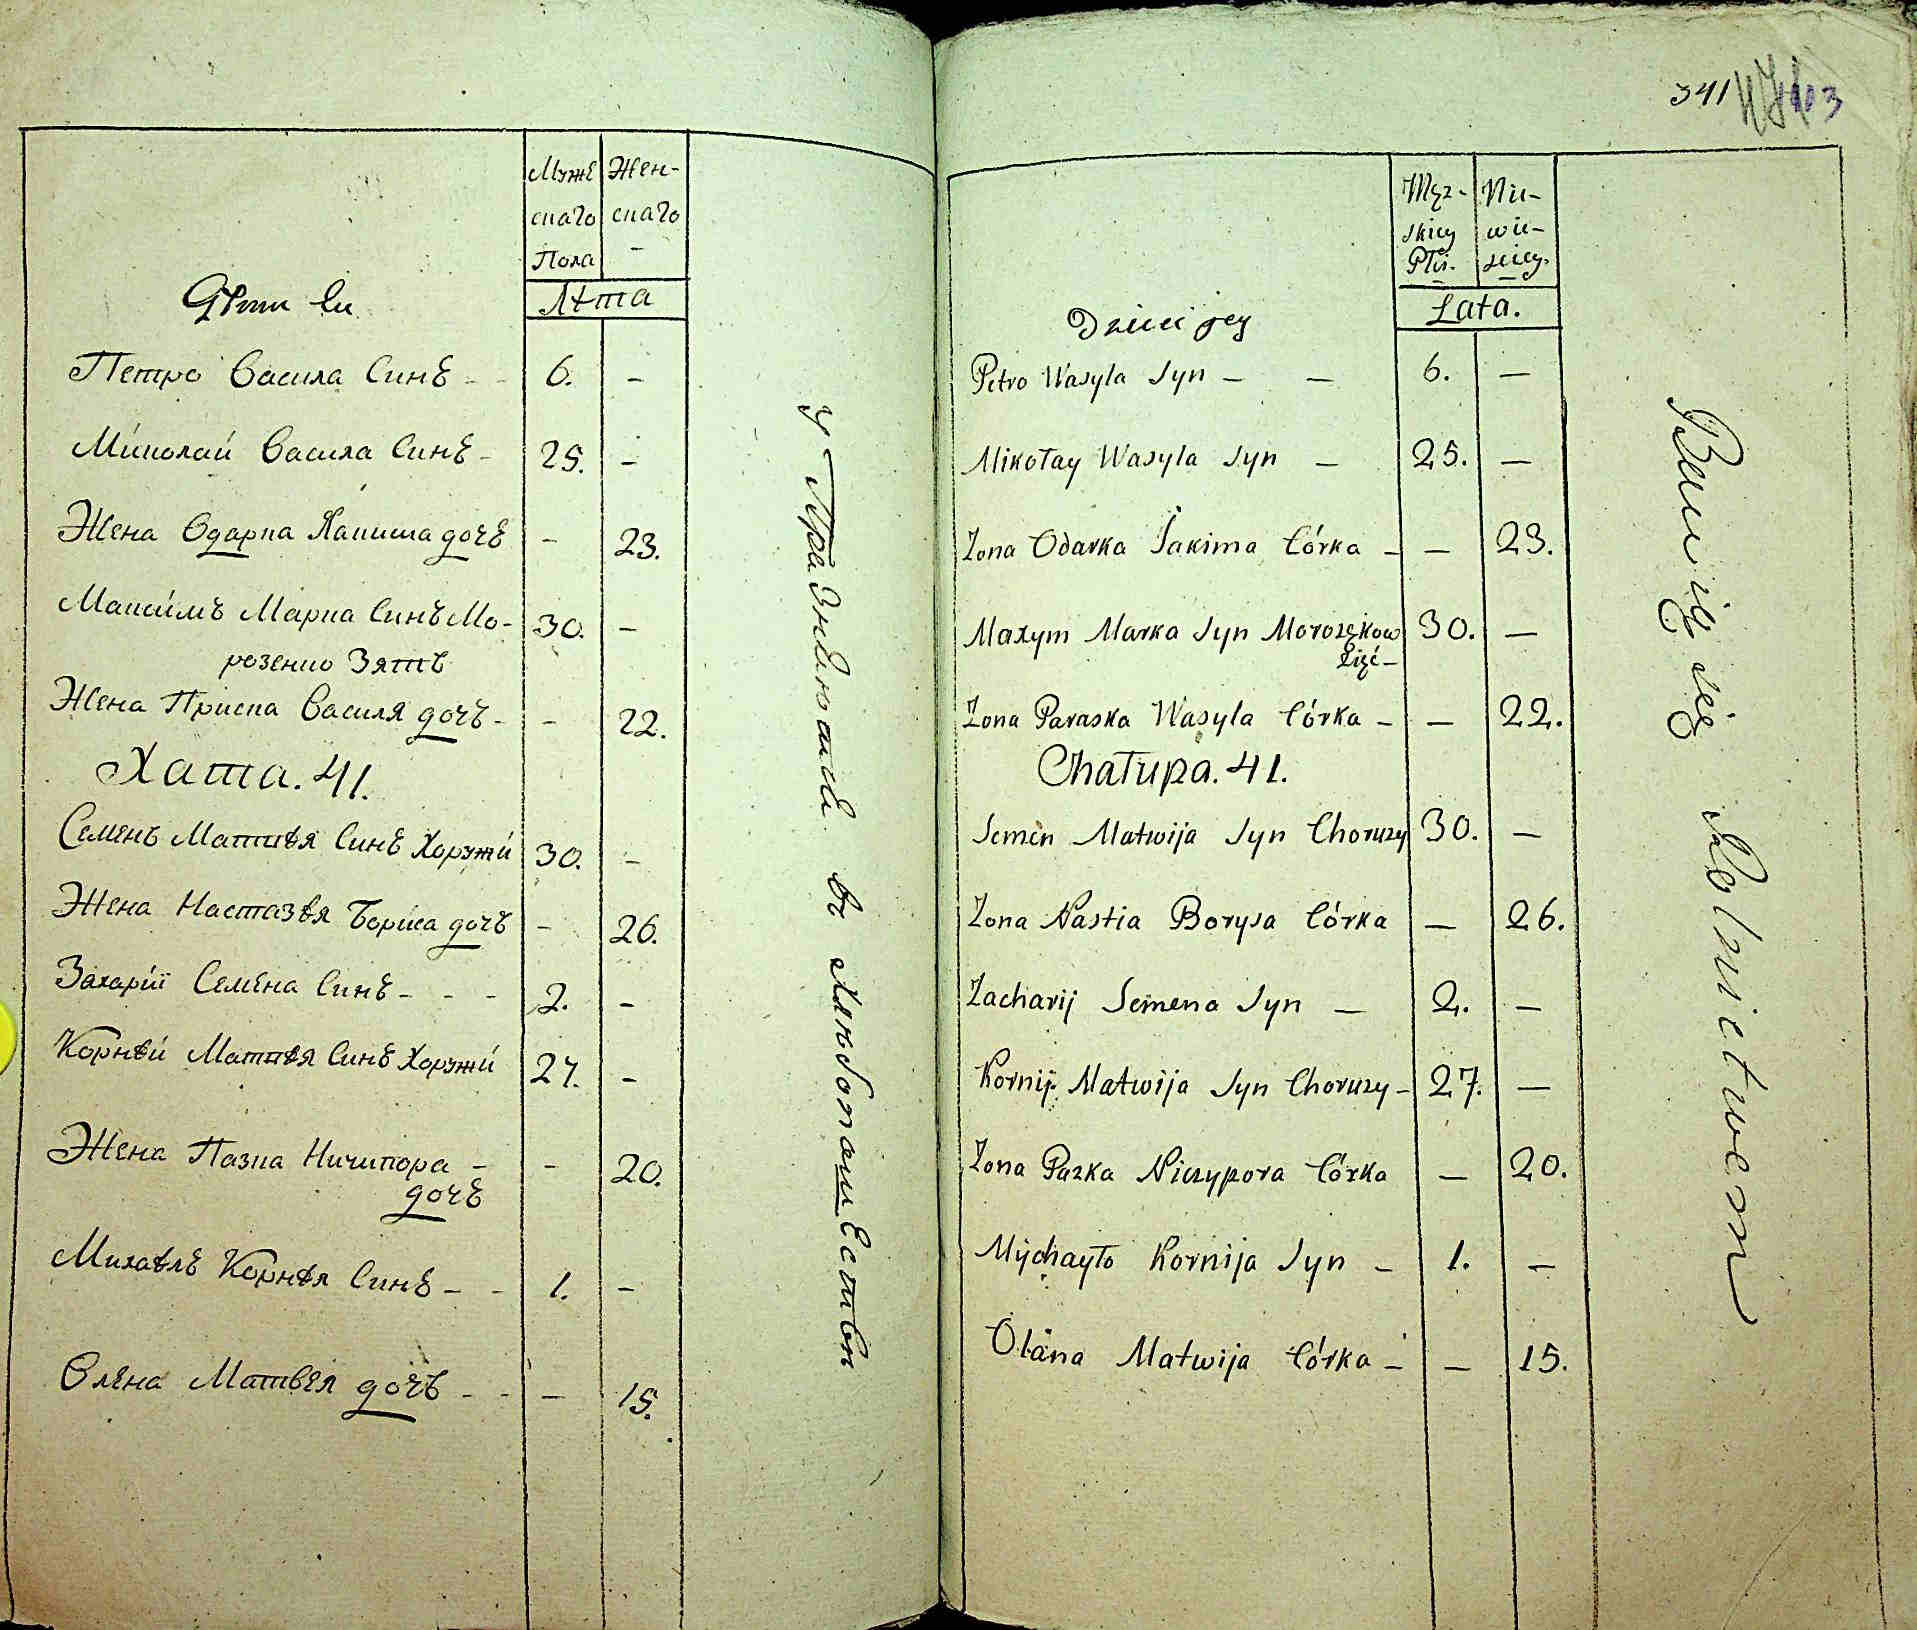 Муже
скаго
Пола
Жен-
скаго
Лѣта
Дѣти еи
Петро Васила Синъ - - 6. -
Миколай Васила Синъ - 25. -
Жена Одарка Якима дочъ - 23.
Максимъ Марка Синъ Мо- 30. -
розенко Зять
Жена Приска Василя дочъ - - 22.
Хата. 41.
Семенъ Матвѣя Синъ Хоружи 30. -
Жена Настазѣя Бориса дочъ - 26.
Захарій Семена Синъ - - - 2. -
Корнѣй Матвѣя Синъ Хоружи 27. -
Жена Пазка Ничипора - - 20.
дочъ
Михаѣлъ Корнѣя Синъ - - 1. -
Олена Матвея дочъ - - - 15.
въ хлѣбопашествѣ
341
Męz-
skiey
Płci.
Nie-
wie-
sciey.
Lata.
Dzieci jey
Petro Wasyla Syn - - 6. -
Mikołay Wasyla Syn - 25. -
Zona Odarka Jakima Córka - - 23.
Maxym Marka Syn Morozękow 30. -
Zięć -
Zona Paraska Wasyla Córka - - 22.
Chałupa. 41.
Semen Matwija Syn Choruzy 30. -
Zona Nastia Borysa Córka - 26.
Zacharij Semena Syn - 2. -
Kornij Matwija Syn Choruzy - 27. -
Zona Pazka Niczypora Córka - 20.
Mychayło Kornija Syn - 1. -
Olana Matwija Córka - - 15.
Bawią się Rolnictwem